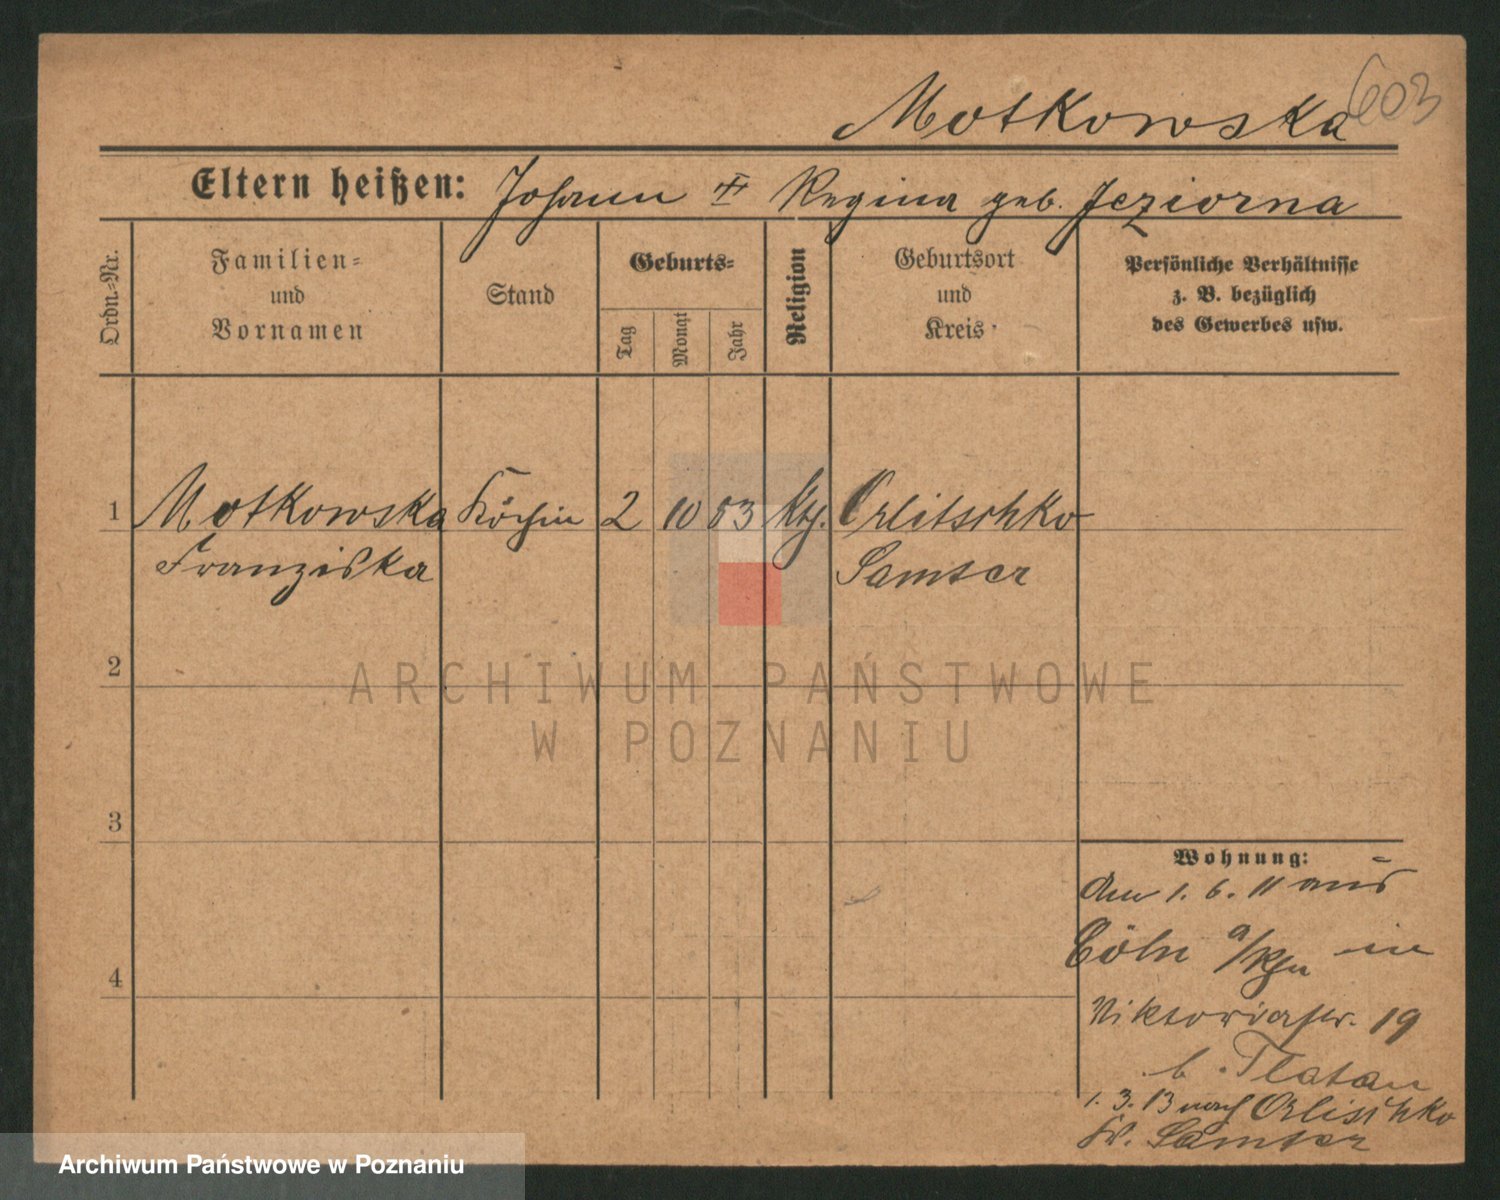 Motkowska 603
Eltern heißen: Johann Regina geb. Jeziorna
Ordn.-Nr.
Familien-
und
Vornamen
Stand
Geburts-
Tag
Monat
Jahr
Religion
Geburtsort
und
Kreis
Persönliche Verhältnisse
z. B. bezüglich
des Gewerbes usw.
1 Motkowska Köchin 2 10 83 kth. Orlitschko
Franziska Samter
2
3
4
Wohnung:
Am 1. 6. 11 aus
Cöln a/Rhn in
Viktoriastr. 19
b. Tlatau
1. 3. 13 nach Orlischko
Kr. Samter
ARCHIWUM PAŃSTWOWE
W POZNANIU
Archiwum Państwowe w Poznaniu